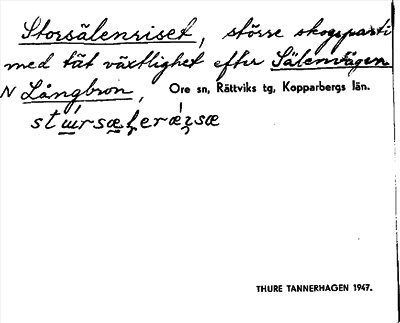 Storsälenriset, större skogsparti
med tät växtlighet efter Sälenvägen
N Långbron, Ore sn, Rättviks tg, Kopparbergs län.
THURE TANNERHAGEN 1947.